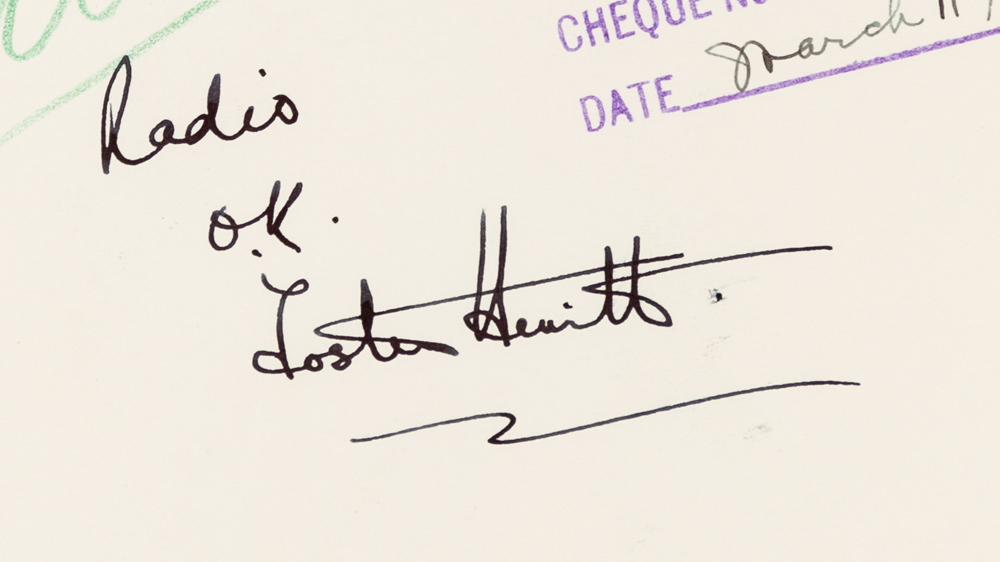 CHEQUE
DATE March 11
Radio
O.K.
Foster Hewitt